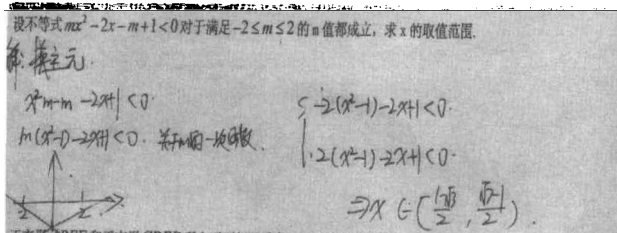 设不等式mx²-2x-m+1<0对于满足-2≤m≤2的m值都成立,求x的取值范围.
解:换主元.
x²m-m-2x+1<0.
m(x²-1)-2x+1<0. 关于m的一次函数.
-2(x²-1)-2x+1<0.
2(x²-1)-2x+1<0.
-2 2
⇒x∈(